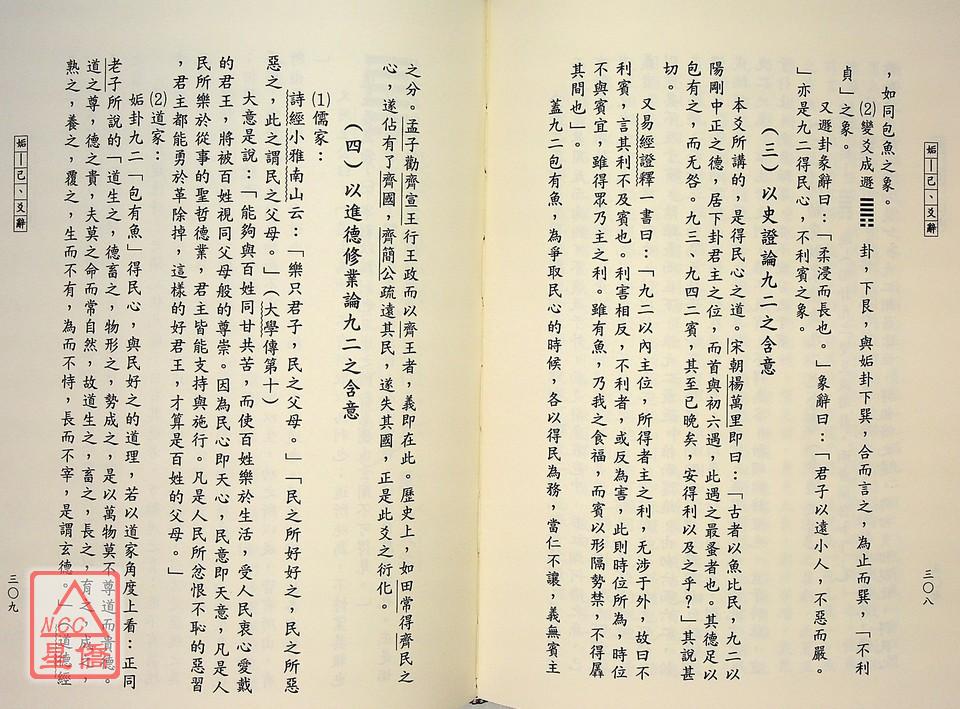 姤｜己、爻辭
三〇八
，如同包魚之象。
⑵變爻成遯䷠卦，下艮，與姤卦下巽，合而言之，為止而巽，「不利
貞」之象。
又遯卦彖辭曰：「柔浸而長也。」象辭曰：「君子以遠小人，不惡而嚴。
」亦是九二得民心，不利賓之象。
（三）以史證論九二之含意
本爻所講的，是得民心之道。宋朝楊萬里即曰：「古者以魚比民，九二以
陽剛中正之德，居下卦君主之位，而首與初六遇，此遇之最蚤者也。其德足以
包有之，而无咎。九三、九四二賓，其至已晚矣，安得利以及之乎？」其說甚
切。
又易經證釋一書曰：「九二以內主位，所得者主之利，无涉于外，故曰不
利賓，言其利不及賓也。利害相反，不利者，或反為害，此則時位所為，時位
不與賓宜，雖得眾乃主之利。雖有魚，乃我之食福，而賓以形隔勢禁，不得羼
其間也」。
蓋九二包有魚，為爭取民心的時候，各以得民為務，當仁不讓，義無賓主
之分。孟子勸齊宣王行王政而以齊王者，義即在此。歷史上，如田常得齊民之
心，遂佔有了齊國，齊簡公疏遠其民，遂失其國，正是此爻之衍化。
（四）以進德修業論九二之含意
⑴儒家：
詩經小雅南山云：「樂只君子，民之父母。」「民之所好好之，民之所惡
惡之，此之謂民之父母。」（大學傳第十）
大意是說：「能夠與百姓同甘共苦，而使百姓樂於生活，受人民衷心愛戴
的君王，將被百姓視同父母般的尊崇。因為民心即天心，民意即天意，凡是人
民所樂於從事的聖哲德業，君主皆能支持與施行。凡是人民所忿恨不恥的惡習
，君主都能勇於革除掉，這樣的好君王，才算是百姓的父母。」
⑵道家：
姤卦九二「包有魚」得民心，與民好之的道理，若以道家角度上看：正同
老子所說的「道生之，德畜之，物形之，勢成之，是以萬物莫不尊道而貴德。
道之尊，德之貴，夫莫之命而常自然，故道生之，畜之，長之，育之，成之，
熟之，養之，覆之，生而不有，為而不恃，長而不宰，是謂玄德。」（道德經
姤｜己、爻辭
三〇九
NCC
星僑